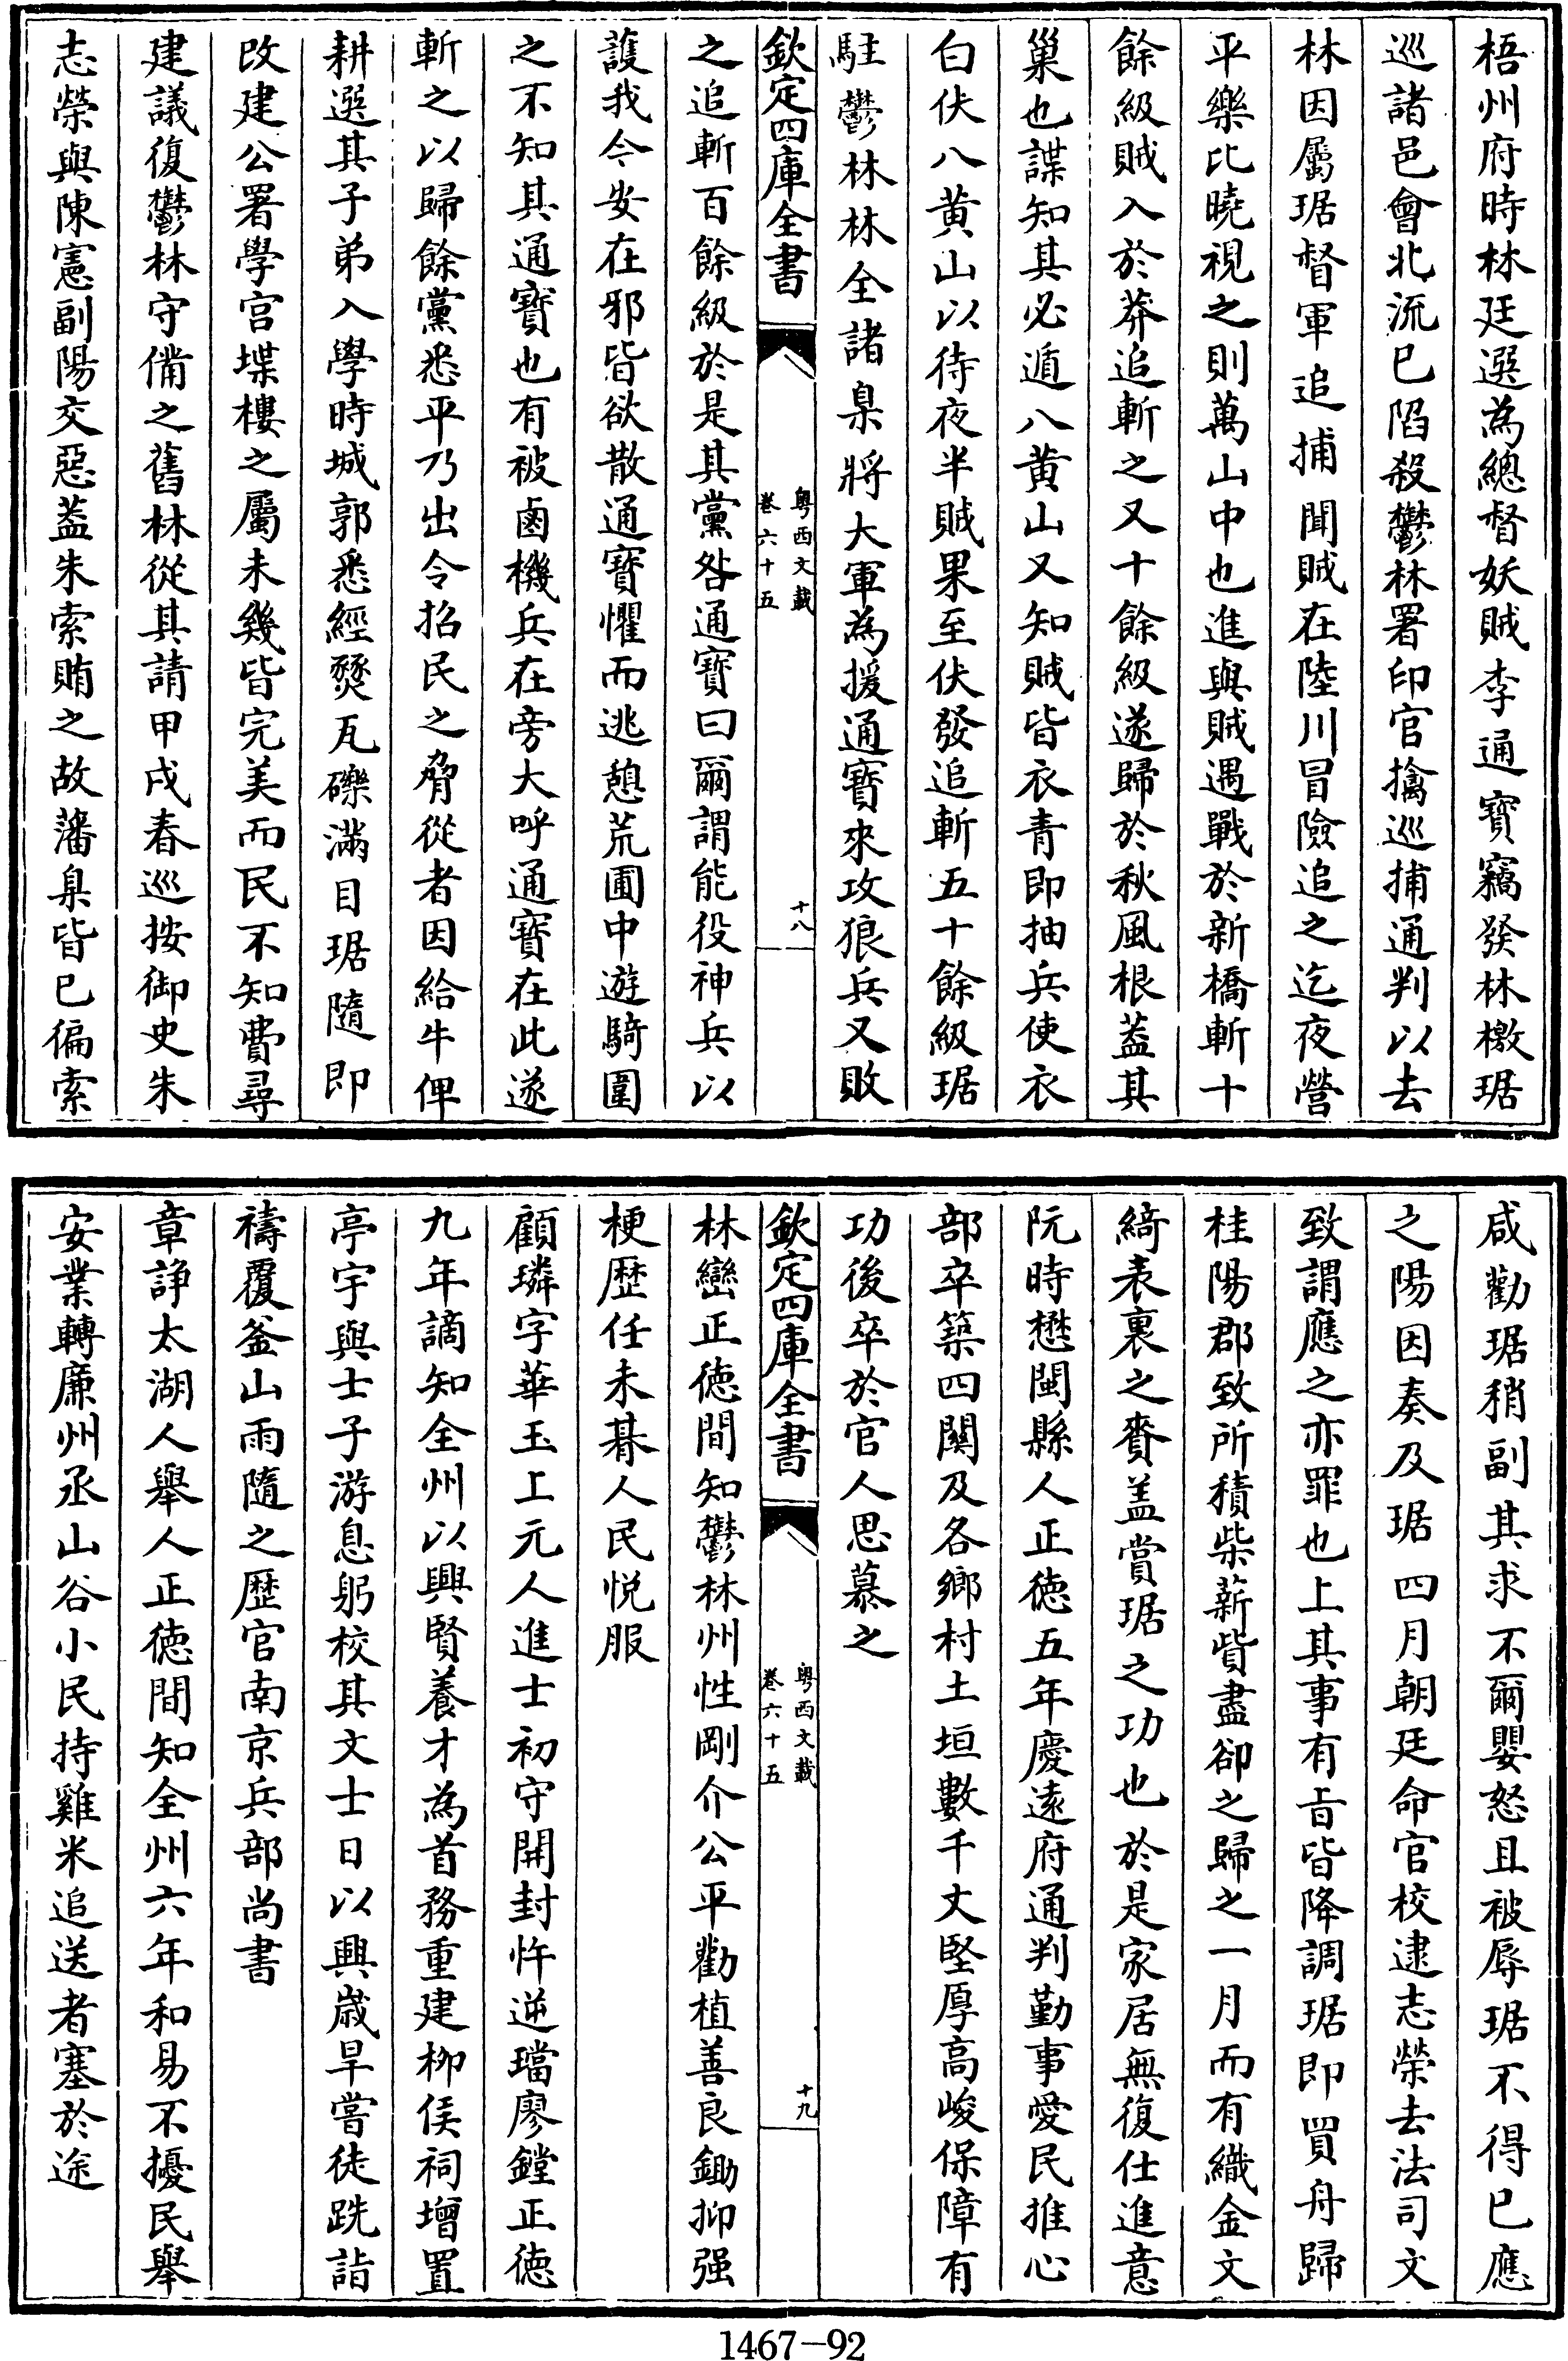 梧州府時林廷選為總督妖賊李通寳竊發林檄琚
巡諸邑會北流已陷殺鬱林署印官擒巡捕通判以去
林因屬琚督軍追捕聞賊在陸川冒險追之迄夜營
平樂比曉視之則萬山中也進與賊遇戰於新橋斬十
餘級賊入於莽追斬之又十餘級遂歸於秋風根葢其
巢也諜知其必遁八黄山又知賊皆衣青即抽兵使衣
白伏八黄山以待夜半賊果至伏發追斬五十餘級琚
駐鬱林林全諸臬將大軍為援通寳來攻狼兵又敗
欽定四庫全書
粤西文載
卷六十五
十八
之追斬百餘級於是其黨咎通寳曰爾謂能役神兵以
護我今安在邪皆欲散通寳懼而逃憩荒圃中遊騎圍
之不知其通寳也有被鹵機兵在旁大呼通寳在此遂
斬之以歸餘黨悉平乃出令招民之脅從者因給牛俾
耕選其子弟入學時城郭悉經燹瓦礫滿目琚隨即
改建公署學宫堞樓之屬未幾皆完美而民不知費尋
建議復鬱林守備之舊林從其請甲戌春巡按御史朱
志榮與陳憲副陽交惡葢朱索賄之故藩臬皆已徧索
咸勸琚稍副其求不爾嬰怒且被辱琚不得已應
之陽因奏及琚四月朝廷命官校逮志榮去法司文
致謂應之亦罪也上其事有㫖皆降調琚即買舟歸
桂陽郡致所積柴薪貲盡卻之歸之一月而有織金文
綺表裏之賚盖賞琚之功也於是家居無復仕進意
阮時懋閩縣人正徳五年慶遠府通判勤事愛民推心
部卒築四關及各鄉村土垣數千丈堅厚高峻保障有
功後卒於官人思慕之
欽定四庫全書
粤西文載
卷六十五
十九
林巒正徳間知鬱林州性剛介公平勸植善良鋤抑强
梗歴任未朞人民悦服
顧璘字華玉上元人進士初守開封忤逆璫廖鏜正徳
九年謫知全州以興賢養才為首務重建栁侯祠增置
亭宇與士子游息躬校其文士日以興歳旱嘗徒跣詣
禱覆釜山雨隨之歴官南京兵部尚書
章諍太湖人舉人正徳間知全州六年和易不擾民舉
安業轉廉州丞山谷小民持雞米追送者塞於途
1467-92